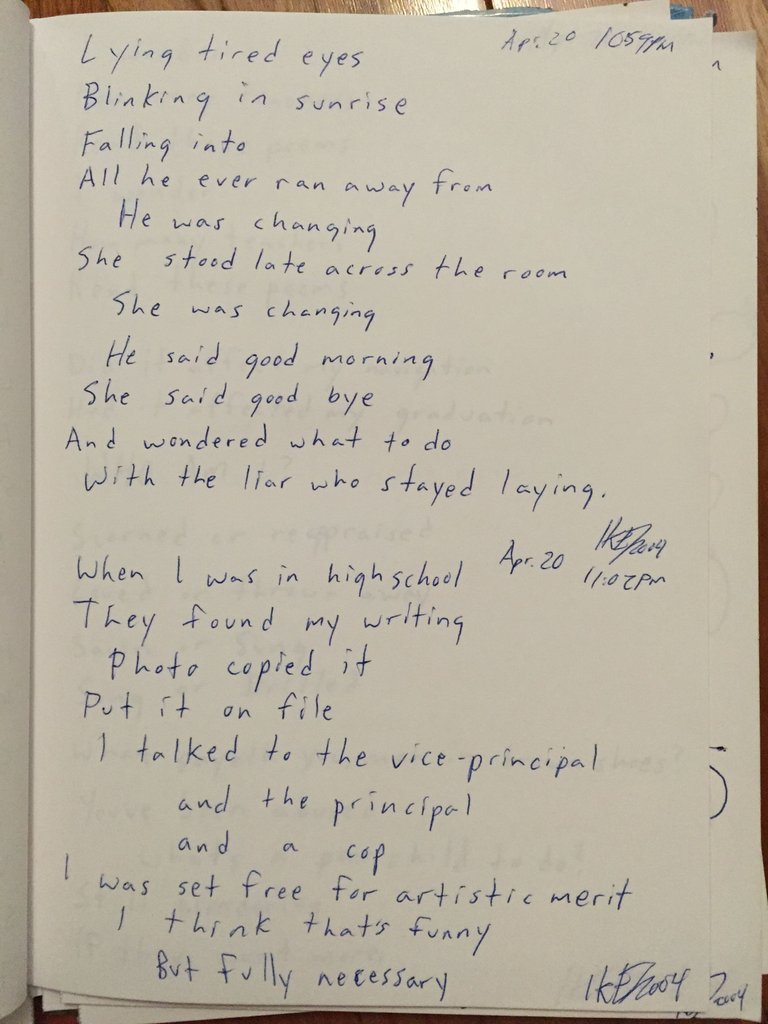 Apr. 20 1059PM
Lying tired eyes
Blinking in sunrise
Falling into
All he ever ran away from
He was changing
She stood late across the room
She was changing
He said good morning
She said good bye
And wondered what to do
With the liar who stayed laying.
Apr. 20 11:02PM
When I was in highschool
They found my writing
Photo copied it
Put it on file
I talked to the vice-principal
and the principal
and a cop
I was set free for artistic merit
I think that's funny
But fully necessary